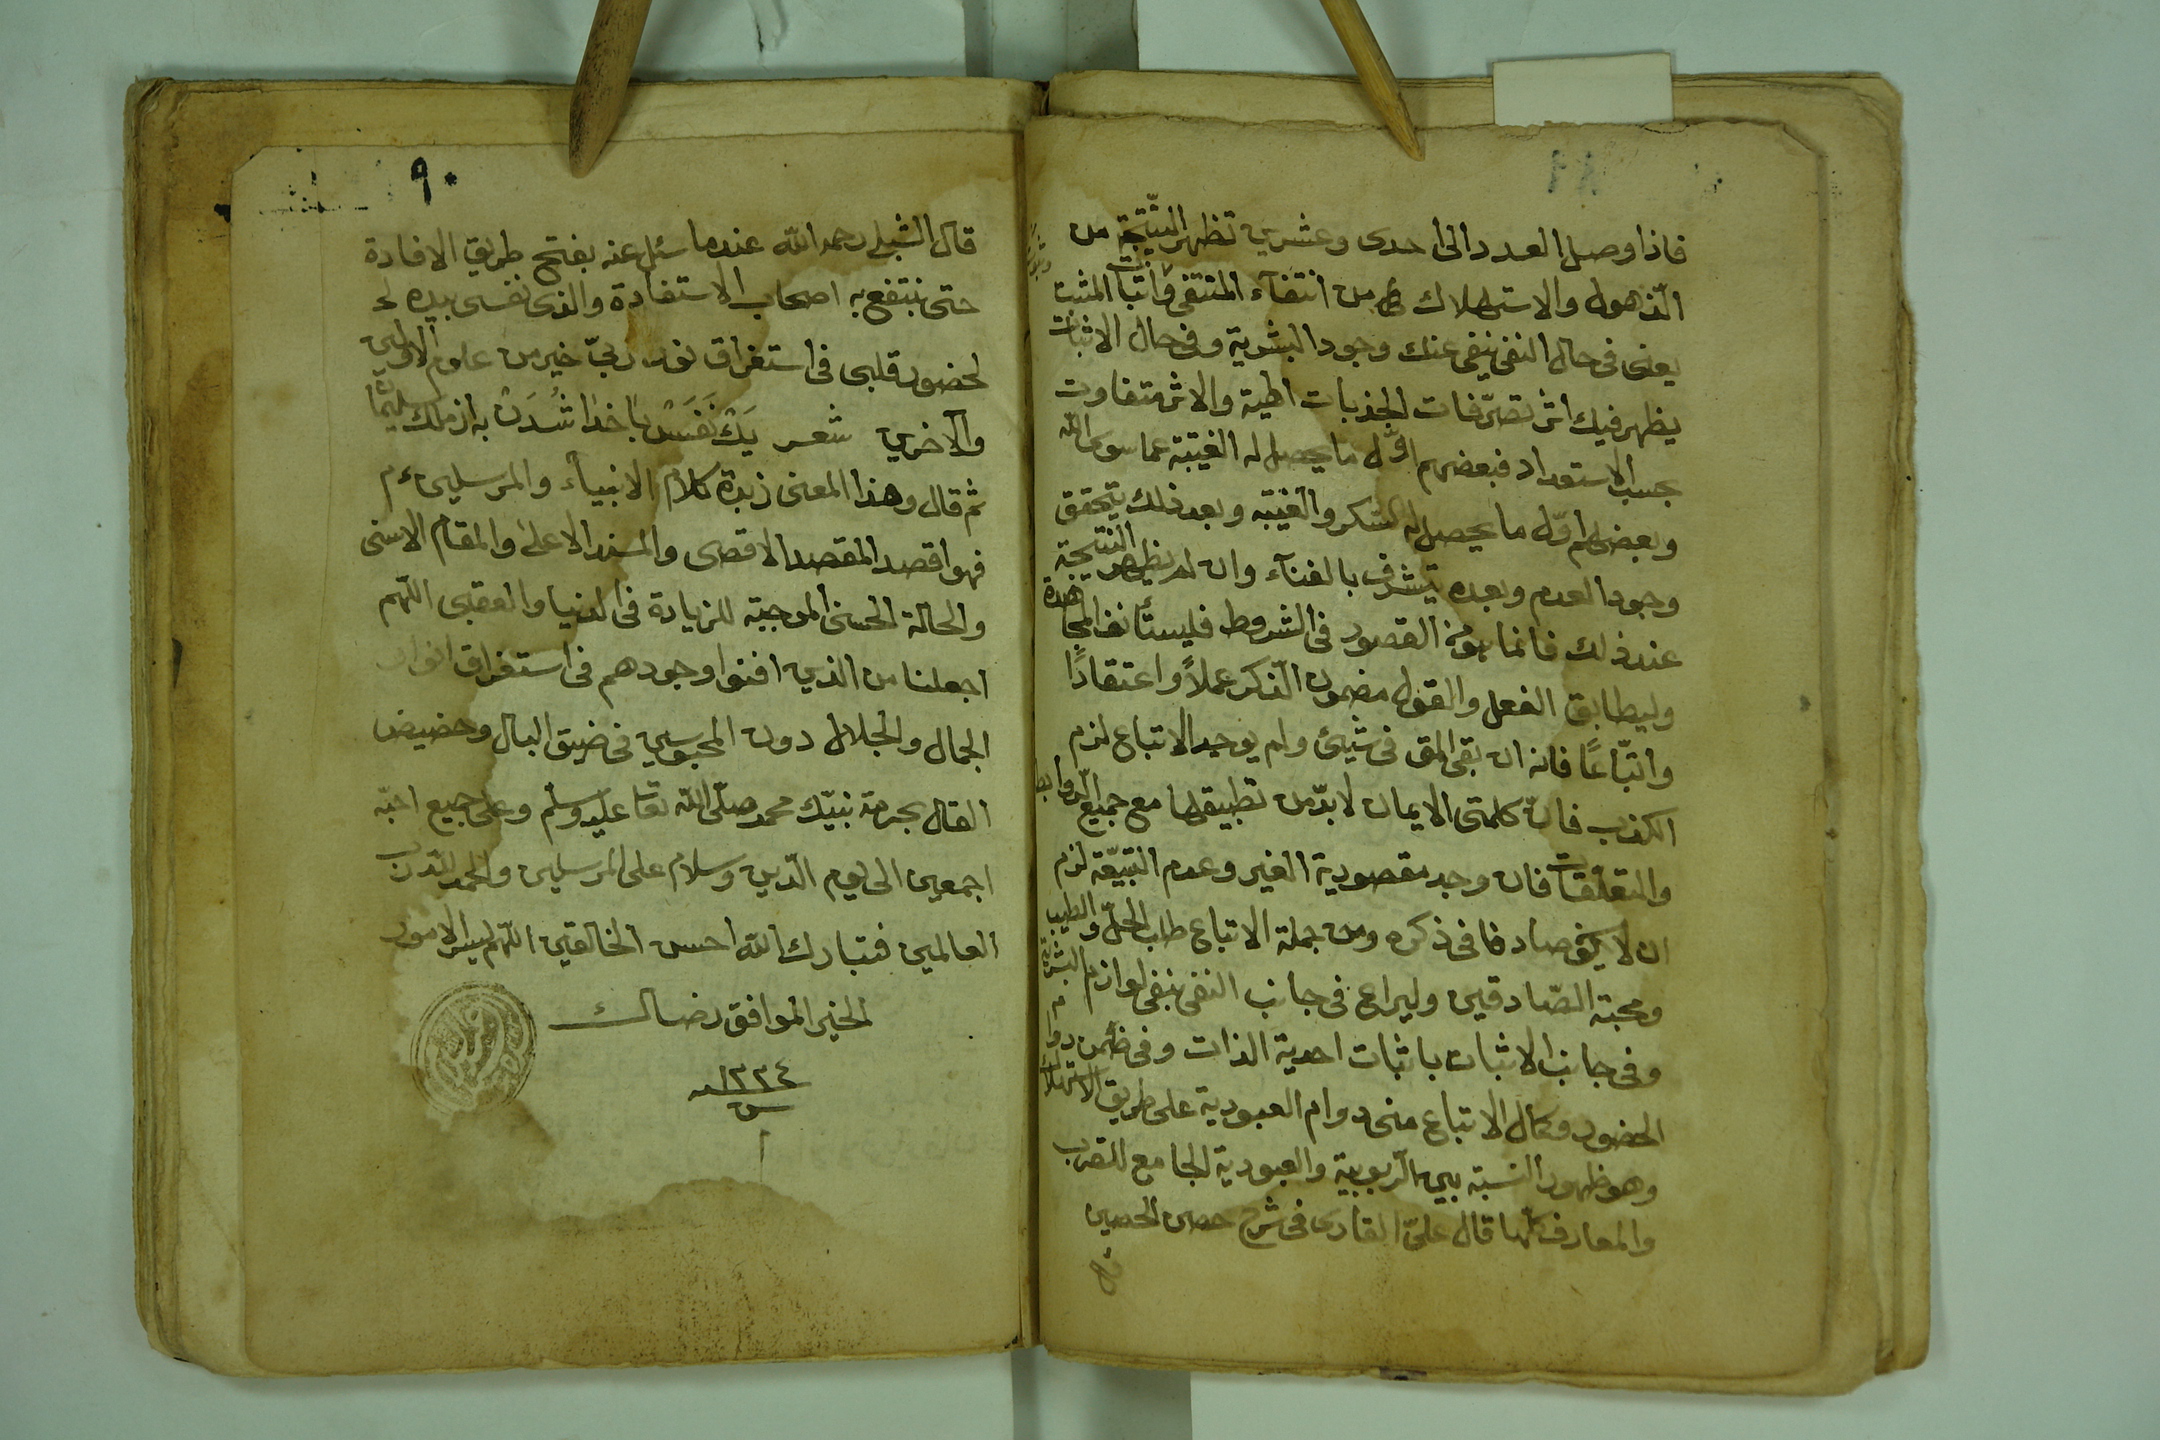 فاذا وصل العدد الى احدى وعشرين تظهر النتيجة من
الذهول والاستهلاك من انتفآء المنتفى واثبات المثبت
يعنى فى حال النفى ينفى عنك وجود البشرية وفى حال الاثبات
يظهر فيك اثر تصرّفات الجذبات الهية والاثر متفاوت
بحسب الاستعداد فبعضهم اوّل ما يحصل له الغيبة عما سوى الله
وبعضهم اوّل ما يحصل له السّكر والغيبة وبعد ذلك يتحقق
وجود العدم وبعده يتشرف بالفنآء وان لم يظهر النتيجة
عند ذلك فانما هو من القصور فى الشروط فليستأنف المجاهدة
وليطابق الفعل والقول مضمون الذكر عملاً واعتقادًا
واتّباعًا فانه ان بقى فى شيئ ولم يوجد الاتباع لزم
الكذب فانّ كلمتى الايمان لابدّ من تطبيقها مع جميع الروابط
والتعلقات فان وجد مقصودية الغير وعدم التبعيّة لزم
ان لا يكون صادقا فى ذكره ومن جملة الاتباع طلب الحلّ والطيب
ومحبة الصّادقين وليراع فى جانب النفى بنفى لوازم البشرية
وفى جانب الاثبات باثبات احدية الذات وفى ضمن دوام
الحضور وكمال الاتباع منى دوام العبودية على طريق الاستهلاك
وهو ظهور النسبة بين الرّبوبية والعبودية الجامع للقرب
والمعارف كلها قال علىّ القارى فى شرح حصن الحصين
قال
٩٠
قال الشبلى رحمه الله عندما سئل عنه بفتح طريق الافادة
حتى ينتفع به اصحاب الاستفادة والذى نفسى بيده
لحضور قلبى فى استغراق نور ربىّ خير من علوم الاولين
والآخرين شعر يَكْ نَفَسْ بَا خدَا شُدَنْ به از ملك سليمان
ثم قال وهذا المعنى زبدة كلام الانبيآء والمرسلين
فهو اقصد المقصد الاقصى والمسند الاعلى والمقام الاسنى
والحالة الحسنى الموجبة للزيادة فى الدنيا والعقبى اللّهم
اجعلنا من الذين افنوا وجودهم فى استغراق انوار
الجمال والجلال دون المحبوسين فى ضيق البال وحضيض
القال بحرمة نبيّك محمد صلّى الله تعا عليه وسلم وعلى جميع احبّه
اجمعين الى يوم الدّين وسلام على المرسلين والحمد لله رب
العالمين فتبارك الله احسن الخالقين اللّهم يسر الامور
الخير الموافق رضاك
١٢٢٤